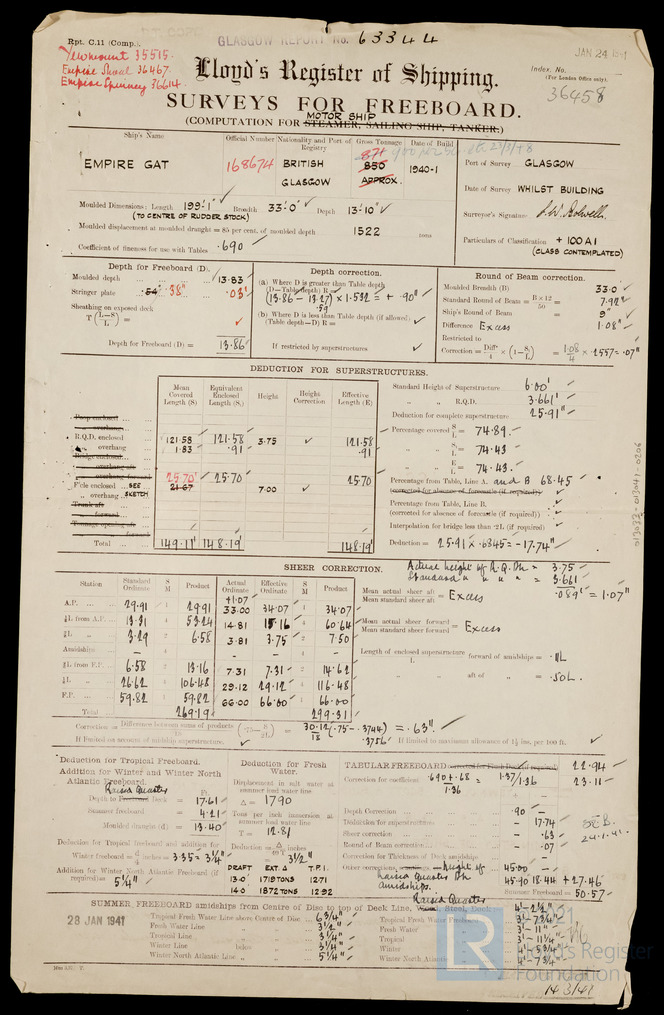 Rpt. C.11 (Comp.).
GLASGOW REPORT No. 63344
JAN 24 1941
Yewmount 35515.
Empire Shoal 36467.
Empire Spinney 36614.
Index. No.
(For London Office only).
36458
Lloyd's Register of Shipping.
SURVEYS FOR FREEBOARD.
MOTOR SHIP
(COMPUTATION FOR STEAMER, SAILING SHIP, TANKER.)
Ship's Name
Official Number
Nationality and Port of Registry
Gross Tonnage
Date of Build
EMPIRE GAT
168674
BRITISH
GLASGOW
871
850
APPROX.
1940-1
Port of Survey GLASGOW
Date of Survey WHILST BUILDING
Surveyor's Signature
Particulars of Classification + 100 A1
(CLASS CONTEMPLATED)
Moulded Dimensions: Length 199'·1" Breadth 33'·0" Depth 13'·10"
(TO CENTRE OF RUDDER STOCK)
Moulded displacement at moulded draught = 85 per cent. of moulded depth 1522 tons
Coefficient of fineness for use with Tables .690
Depth for Freeboard (D).
Moulded depth 13.83
Stringer plate .54" .38" .03
Sheathing on exposed deck
T (L-S / L) =
Depth for Freeboard (D) = 13.86
Depth correction.
(a) Where D is greater than Table depth
(D-Table depth) R =
(13.86 - 13.27) × 1.532 = + .90"
.59
(b) Where D is less than Table depth (if allowed)
(Table depth-D) R =
If restricted by superstructures
Round of Beam correction.
Moulded Breadth (B) 33.0'
Standard Round of Beam = B×12 / 50 = 7.92"
Ship's Round of Beam = 9"
Difference Excess 1.08"
Restricted to
Correction = Diff. / 4 × (1-S₁ / L) = 1.08 / 4 × .2557 = .07"
DEDUCTION FOR SUPERSTRUCTURES.
Mean Covered Length (S)
Equivalent Enclosed Length (S₁)
Height
Height Correction
Effective Length (E)
Poop enclosed
overhang
R.Q.D. enclosed 121.58 121.58 3.75 121.58
overhang 1.83 .91 .91
Bridge enclosed
overhang aft
overhang forward
F'cle enclosed SEE 25.70' 25.70 25.70
overhang SKETCH 21.67 7.00
Trunk aft
forward
Tonnage opening aft
forward
Total 149.11' 148.19' 148.19'
Standard Height of Superstructure 6.00'
" " R.Q.D. 3.661'
Deduction for complete superstructure 25.91"
Percentage covered S / L = 74.89
" " S₁ / L = 74.43
" " E / L = 74.43
Percentage from Table, Line A. and B 68.45
(corrected for absence of forecastle (if required))
Percentage from Table, Line B.
(corrected for absence of forecastle (if required))
Interpolation for bridge less than .2L (if required)
Deduction = 25.91 × .6845 = -17.74"
SHEER CORRECTION.
Station
Standard Ordinate
S M
Product
Actual Ordinate
Effective Ordinate
S M
Product
+1.07
A.P. 29.91 1 29.91 33.00 34.07 1 34.07
⅙L from A.P. 13.31 4 53.24 14.81 15.16 4 60.64
⅓L " 3.29 2 6.58 3.81 3.75 2 7.50
Amidships - 4 - - - 4 -
⅓L from F.P. 6.58 2 13.16 7.31 7.31 2 14.62
⅙L " 26.62 4 106.48 29.12 29.12 4 116.48
F.P. 59.82 1 59.82 66.00 66.00 1 66.00
Total 269.19 299.31
Actual height of R.Q.Dk = 3.75
Standard " " " " = 3.661
.089' = 1.07"
Mean actual sheer aft
Mean standard sheer aft = Excess
Mean actual sheer forward
Mean standard sheer forward = Excess
Length of enclosed superstructure forward of amidships = .1L
L
" " aft of " = .50L.
Correction = Difference between sums of products / 18 (.75 - S / 2L) = 30.12 / 18 (.75 - .3744) = .63"
.3756
If limited on account of midship superstructure.
If limited to maximum allowance of 1½ ins. per 100 ft.
Deduction for Tropical Freeboard.
Addition for Winter and Winter North Atlantic Freeboard.
Raised Quarter
Ft.
Depth to Freeboard Deck = 17.61
Summer freeboard = 4.21
Moulded draught (d) = 13.40
Deduction for Tropical freeboard and addition for
Winter freeboard = d / 4 inches = 3.35 = 3¼"
Addition for Winter North Atlantic Freeboard (if required) = 5¼"
Deduction for Fresh Water.
Displacement in salt water at summer load water line
Δ = 1790
Tons per inch immersion at summer load water line
T = 12.81
Deduction = Δ / 40 T inches
= 3½"
DRAFT EXT. Δ T.P.I.
13·0 1719 TONS 12·71
14·0 1872 TONS 12·92
TABULAR FREEBOARD corrected for Flush Deck 22.94
Correction for coefficient .690+.68 / 1.36 = 1.37/1.36 23.11
+ -
Depth Correction .90 -
Deduction for superstructures - 17.74
Sheer correction - .63
Round of Beam correction - .07
Correction for Thickness of Deck amidships
Other corrections - height of 45.00 -
Raised Quarter Dk
amidships.
45.90 18.44 + 27.46
Summer Freeboard = 50.57
24.1.41
SUMMER FREEBOARD amidships from Centre of Disc to top of Deck Line, Raised Quarter Deck 4'-2½"
Tropical Fresh Water Line above Centre of Disc 6¾"
Fresh Water Line " " 3½"
Tropical Line " " 3¼"
Winter Line below " 3¼"
Winter North Atlantic Line " " 5¼"
Tropical Fresh Water Freeboard 3'-7¾"
Fresh Water " 3'-11"
Tropical " 3'-11¼"
Winter " 4'-5¾"
Winter North Atlantic " 4'-7¾"
28 JAN 1941
LR
© 2021
Lloyd's Register
Foundation
013033-013041-0206